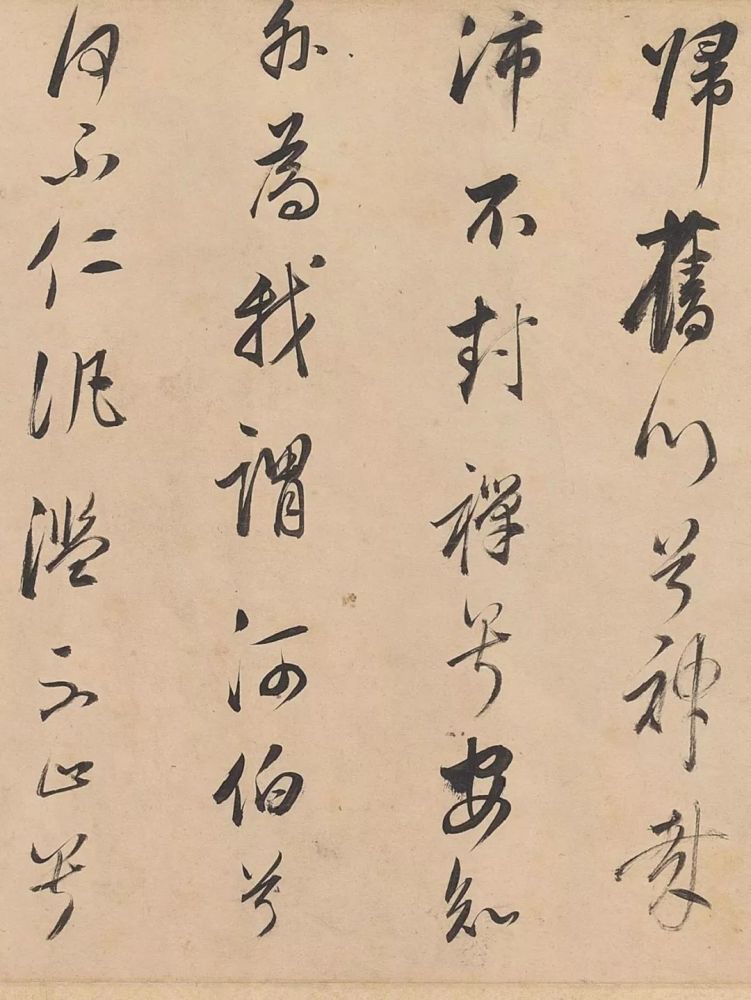 歸舊川兮神哉
沛不封禪兮安知
外為我謂河伯兮
何不仁泛濫不止兮